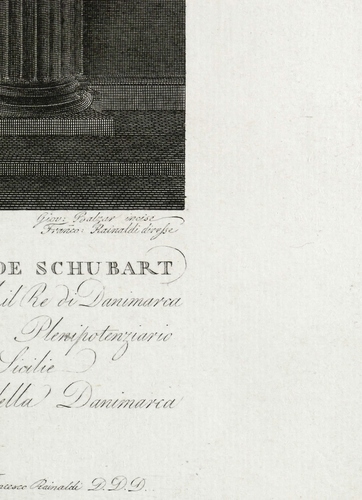 Giov: Balzar incise
Franco: Rainaldi diresse
DE SCHUBART
il Re di Danimarca
Plenipotenziario
Sicilie
della Danimarca
ncesco Rainaldi D. D. D.